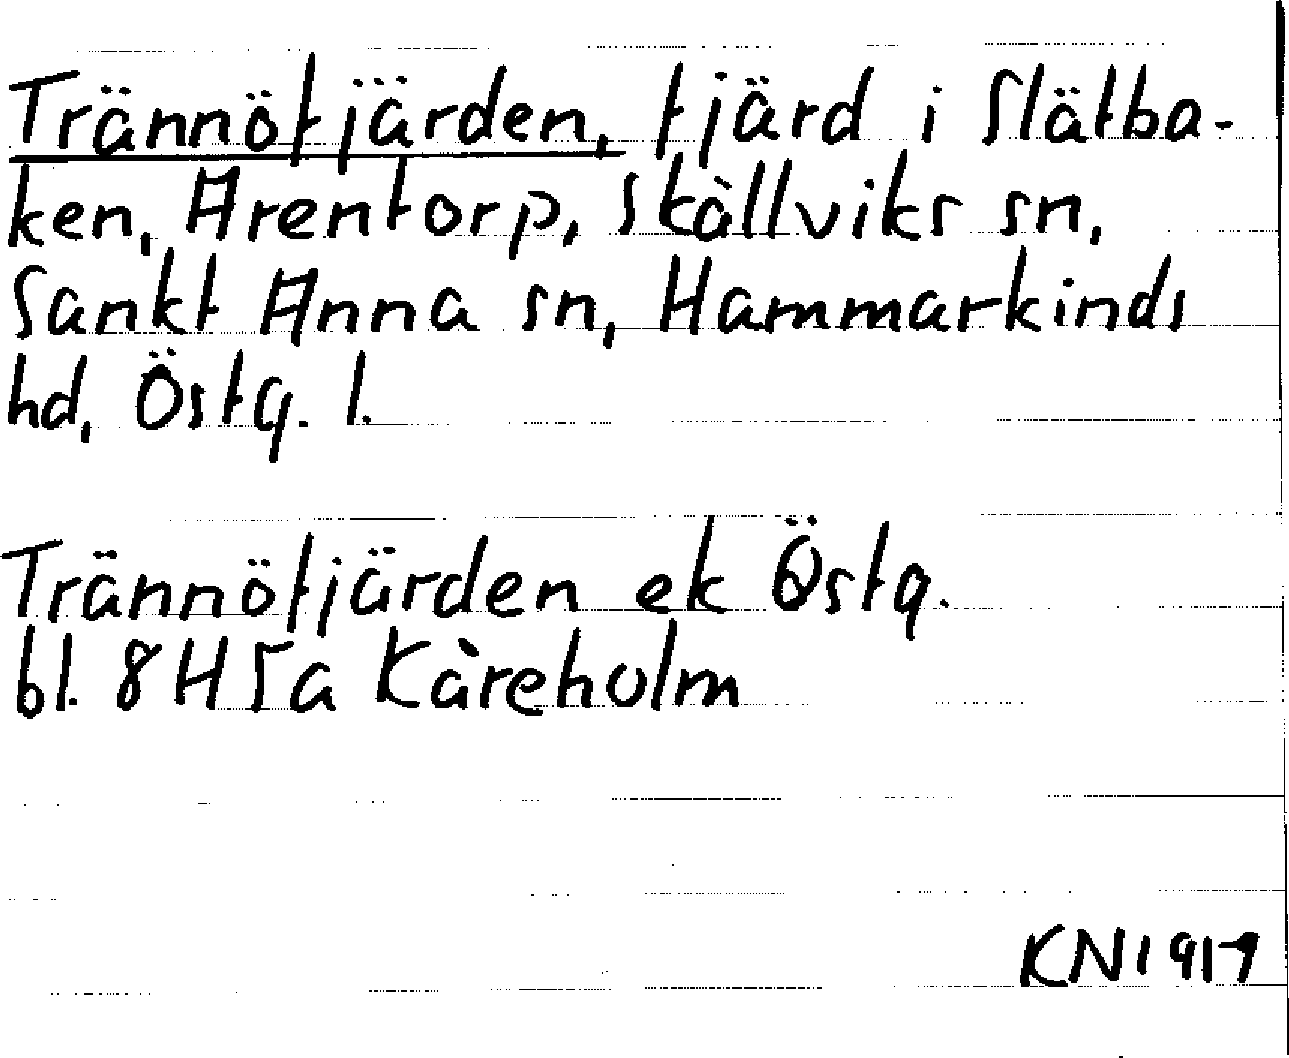 Trännöfjärden, fjärd i Slätba-
ken, Arentorp, Skällviks sn,
Sankt Anna sn, Hammarkinds
hd, Östg. l.
Trännöfjärden ek Östg.
bl. 8H5a Kåreholm